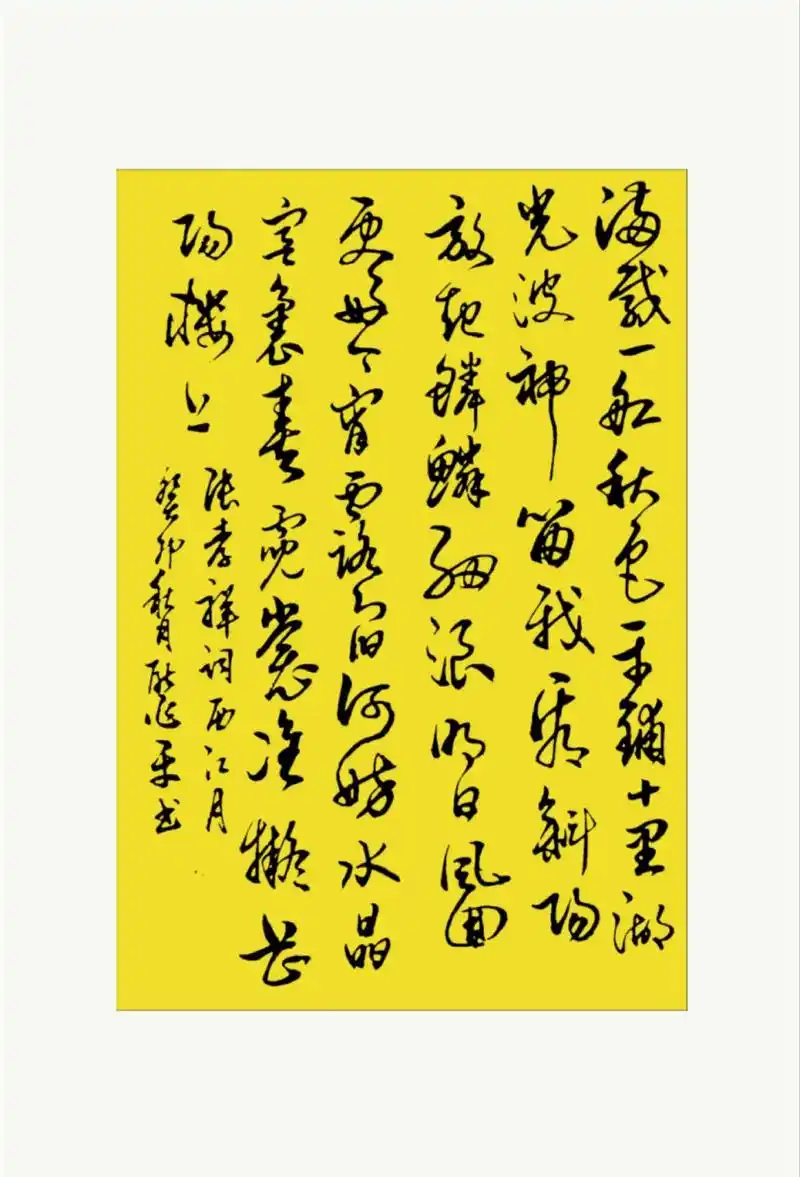 满载一船秋色平铺十里湖
光波神留我看斜阳
放起鳞鳞细浪明日风回
更好今宵露宿何妨水晶
宫裏奏霓裳准拟岳
阳楼上
张孝祥词西江月
癸卯秋月 平书